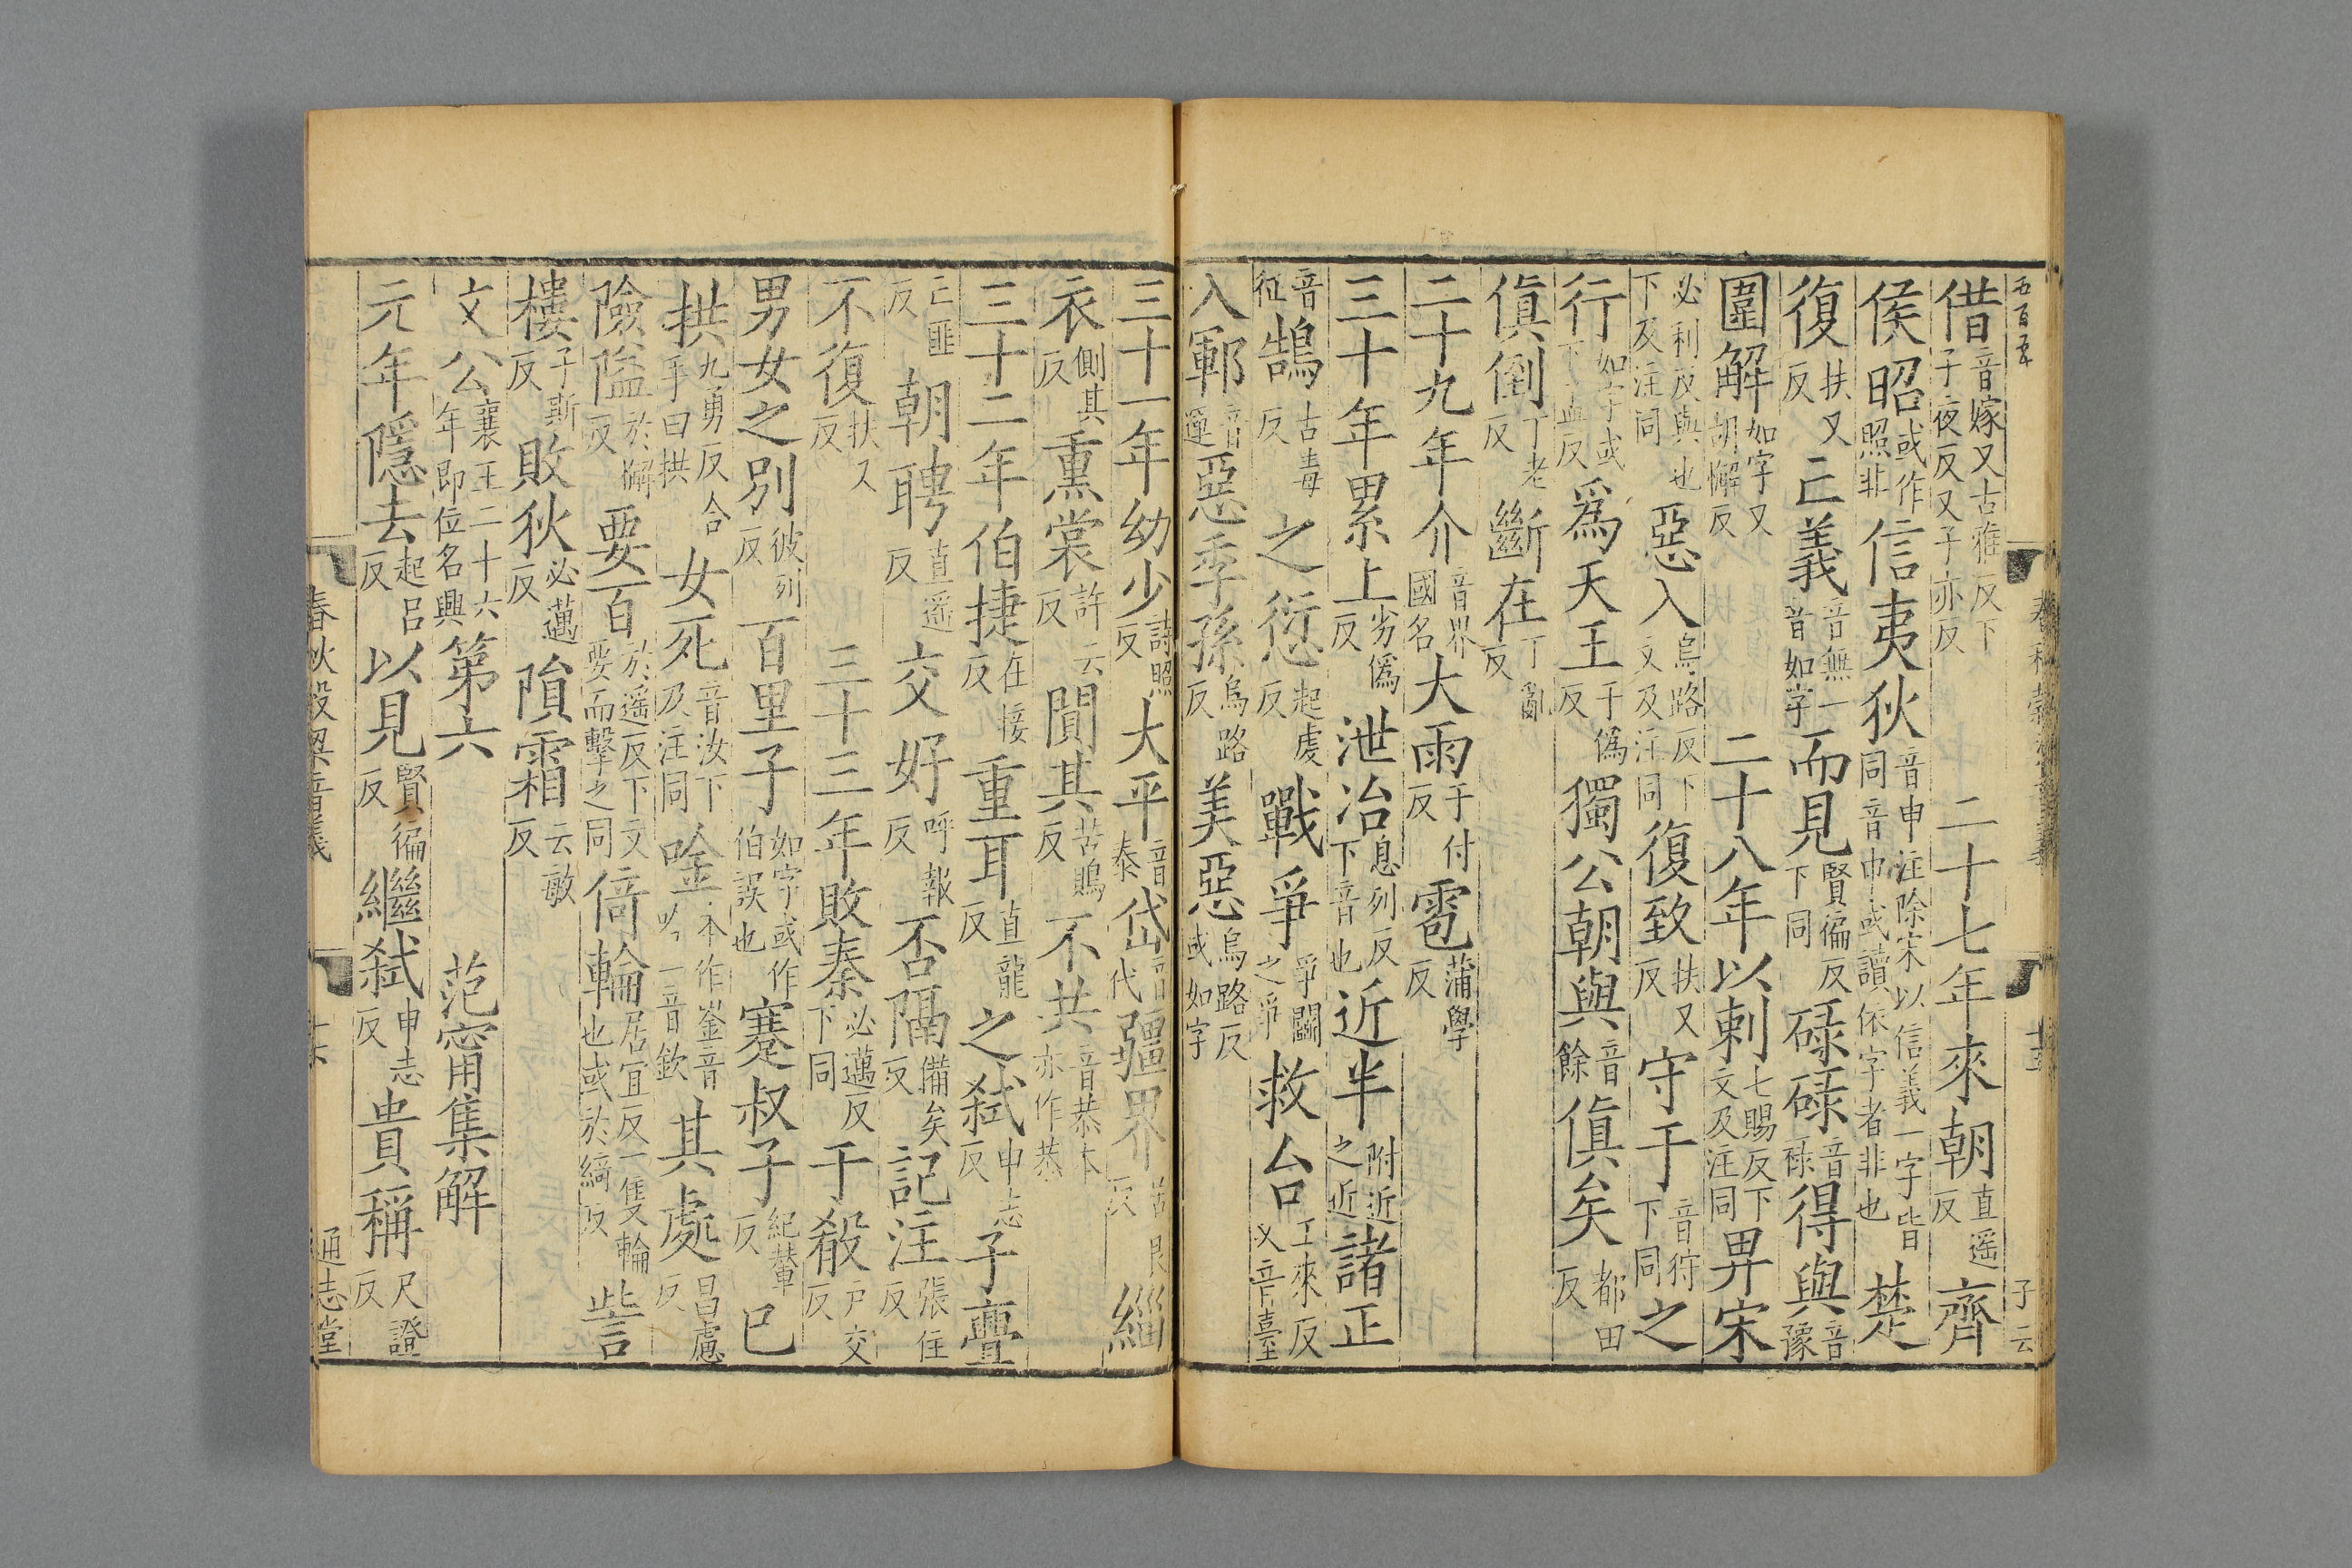 借音嫁又古雅反下子夜反又子亦反 二十七年來朝直遥反齊
侯昭或作照非信夷狄音申注除宋以信義一字皆同音申或讀依字者非也楚
復扶又反亡義音無一音如字而見賢徧反下同碌碌音祿得與音豫
圍解如字又胡懈反 二十八年以刺七賜反下文及注同畀宋
必利反與也下及注同惡入烏路反下文及注同復致扶又反守于音狩下同之
行如字或下孟反爲天王于僞反獨公朝與音餘傎矣都田反
傎倒丁老反斷在丁亂反
二十九年介音界國名大雨于付反雹蒲學反
三十年累上劣僞反泄冶息列反下音也近半附近之近諸正
音征鵠古毒反之愆起虔反戰爭爭鬭之爭救台工來反又音臺
入鄆音運惡季孫烏路反美惡烏路反或如字
三十一年幼少詩照反大平音泰岱音代疆界苦良反緇
衣側其反熏裳許云反閴其苦鶪反不共音恭本亦作恭
三十二年伯捷在接反重耳直龍反之弑申志反子亹
亡匪反朝聘直遥反交好呼報反否隔備矣反記注張住反
不復扶又反 三十三年敗秦必邁反下同于殽戶交反
男女之別彼列反百里子如字或作伯誤也蹇叔子紀輦反已
拱九勇反合手曰拱女死音汝下及注同唫本作崟音吟一音欽其處昌慮反
險隘於懈反要百於遥反下文要而擊之同倚輪居宜反一隻輪也或於綺反訾
樓子斯反敗狄必邁反隕霜云敏反
文公襄王二十六年即位名興第六 范甯集解
元年隱去起呂反以見賢徧反繼弑申志反貴稱尺證反
春秋穀梁音義
通志堂